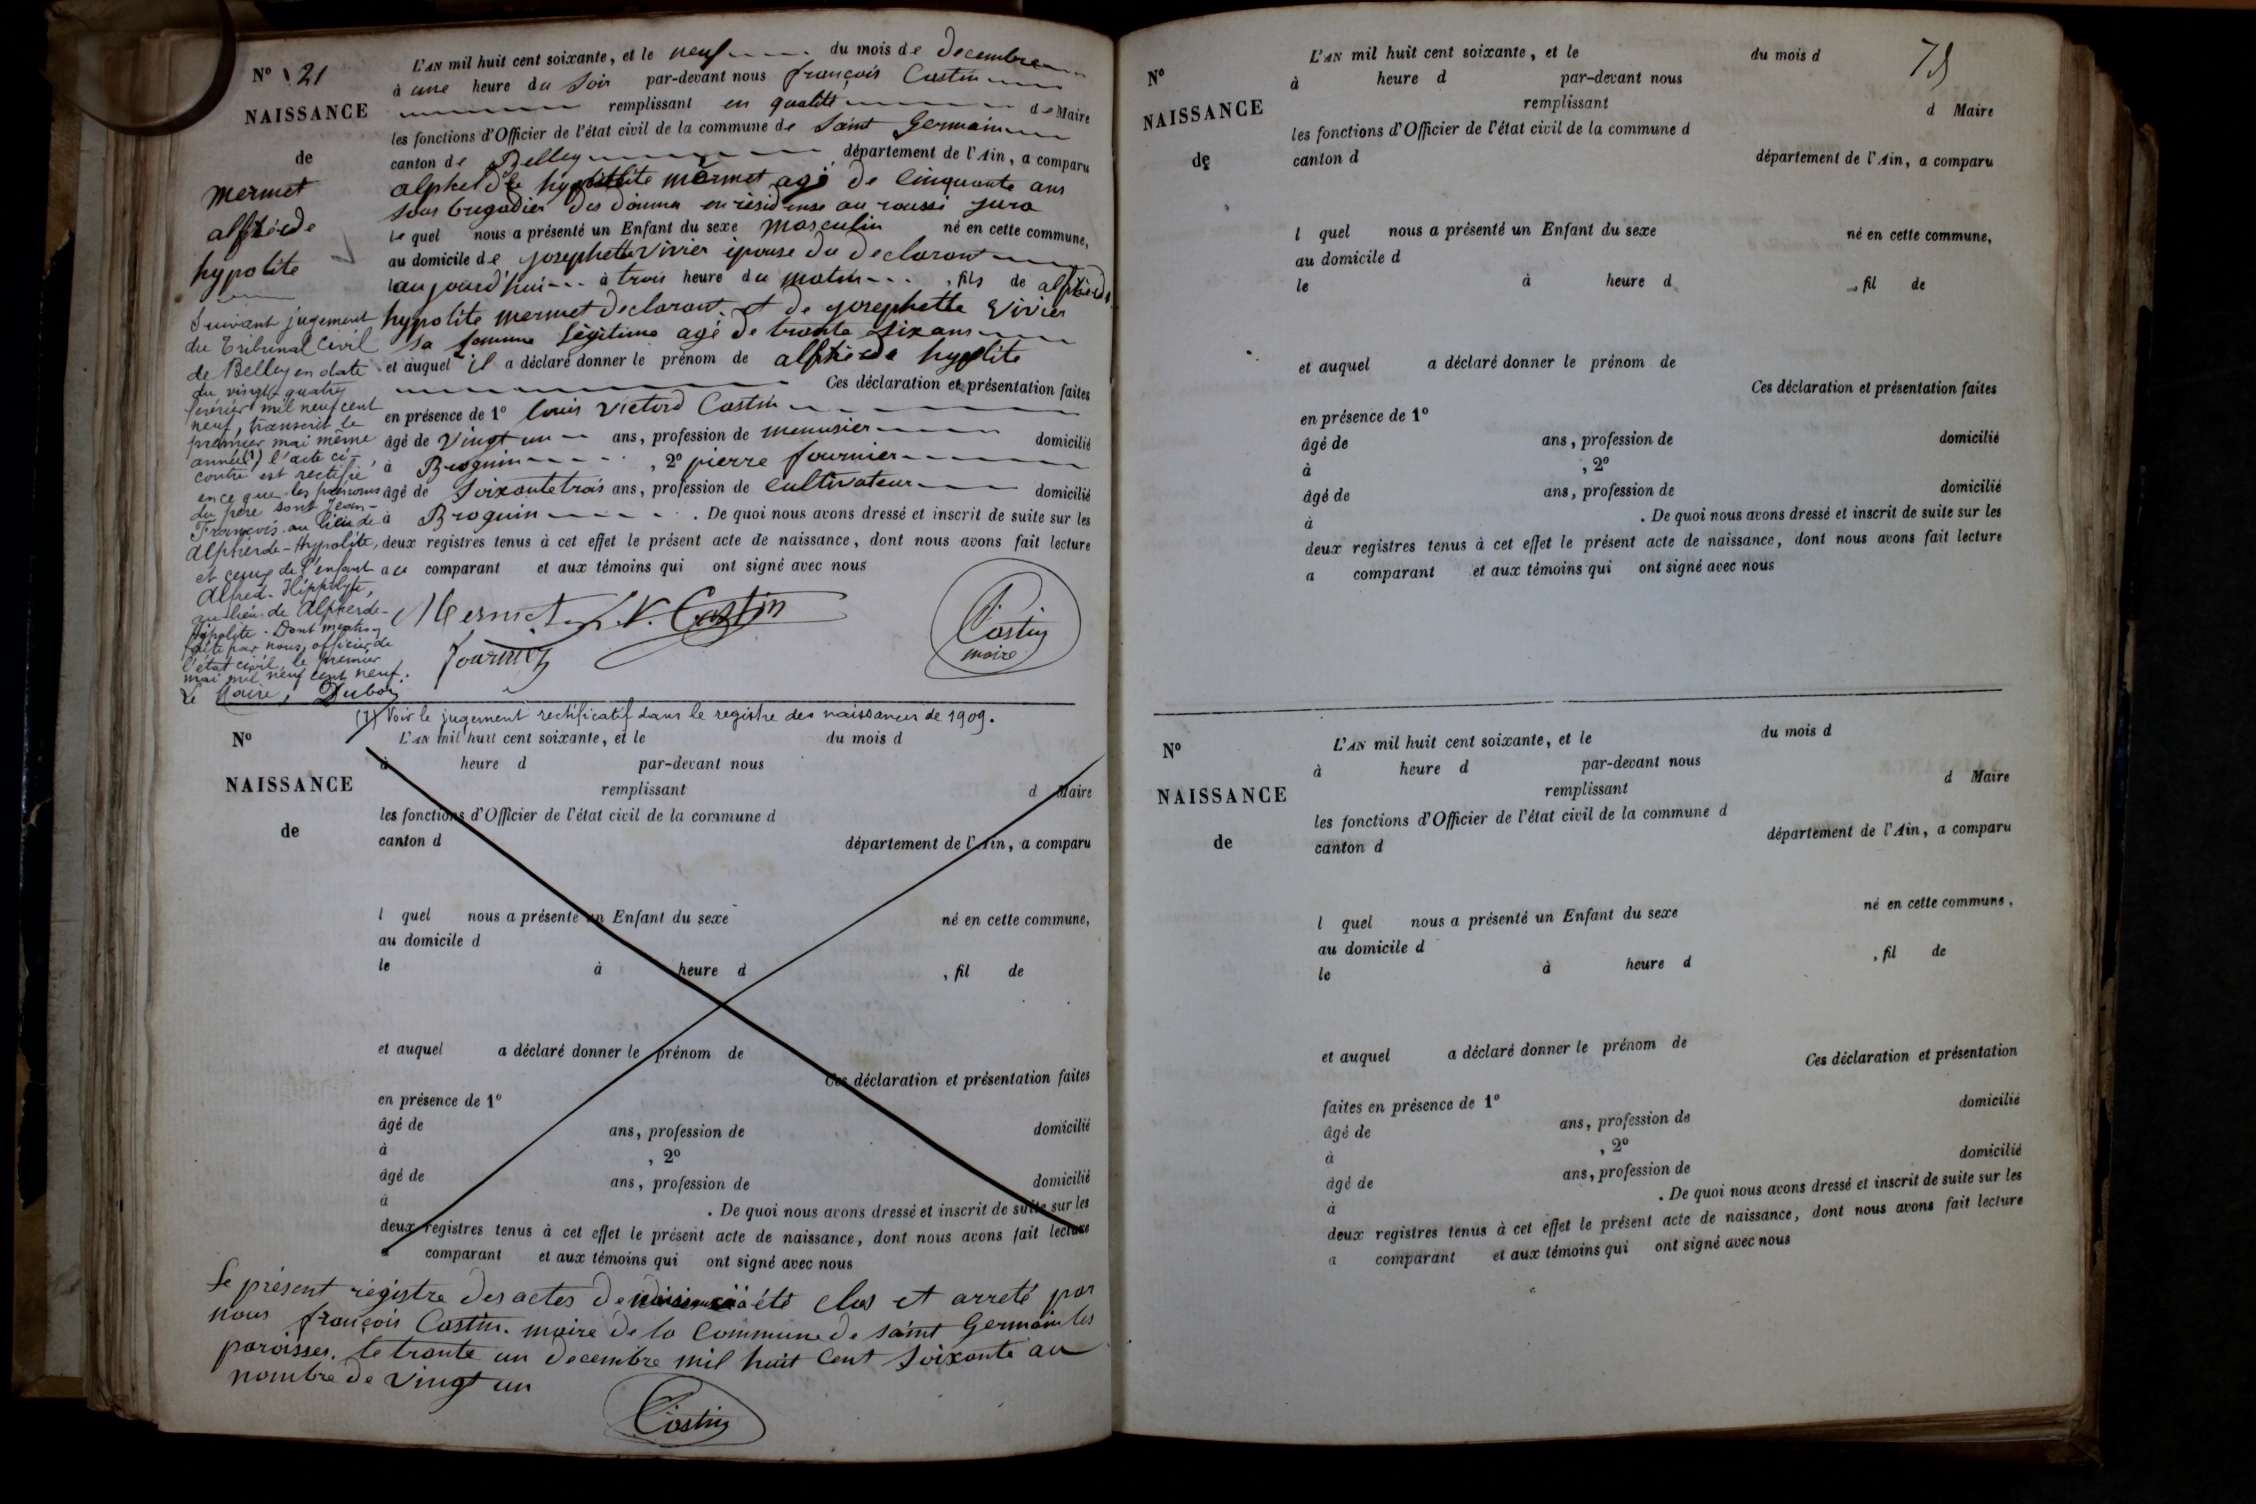 N° 21
NAISSANCE
de
mermet
alphéede
hypolite
L'AN mil huit cent soixante, et le neuf du mois de decembre
à une heure du soir par-devant nous françois Castin
remplissant en qualité de Maire
les fonctions d'Officier de l'état civil de la commune de saint Germain
canton de Belley département de l'Ain, a comparu
hypolite mermet agé de cinquante ans
sous brigadier des douanes en residense au roussi jura
le quel nous a présenté un Enfant du sexe masculin né en cette commune,
au domicile de josephette vivier épouse du declarant
aujourd'hui à trois heure du matin, fils de
hypolite mermet declarant et de josephette vivier
sa femme légitime agé de trante six ans
et auquel il a déclaré donner le prénom de hypolite
Ces déclaration et présentation faites
en présence de 1° louis victord Castin
âgé de vingt un ans, profession de menusier domicilié
à Brognin, 2° pierre fournier
âgé de soixante trois ans, profession de cultivateur domicilié
à Brognin. De quoi nous avons dressé et inscrit de suite sur les
deux registres tenus à cet effet le présent acte de naissance, dont nous avons fait lecture
au comparant et aux témoins qui ont signé avec nous
Mermet L. V. Castin
fournier
Castin
maire
Suivant jugement
du Tribunal Civil
de Belley en date
du vingt-quatre
février mil neuf cent
neuf, transcrit le
premier mai même
année (1) l'acte ci-
contre est rectifié
en ce que les prénoms
du père sont Jean-
François au lieu de
Alpherde-Hypolite,
et ceux de l'enfant
Alfred-Hippolyte,
au lieu de Alpherde-
Hipolite. Dont mention
faite par nous, officier de
l'état civil, le premier
mai mil neuf cent neuf.
Le Maire, Duboy
(1) Voir le jugement rectificatif dans le registre des naissances de 1909.
N°
NAISSANCE
de
L'AN mil huit cent soixante, et le du mois d
à heure d par-devant nous
remplissant d Maire
les fonctions d'Officier de l'état civil de la commune d
canton d département de l'Ain, a comparu
l quel nous a présenté un Enfant du sexe né en cette commune,
au domicile d
le à heure d , fil de
et auquel a déclaré donner le prénom de
Ces déclaration et présentation faites
en présence de 1°
âgé de ans, profession de domicilié
à , 2°
âgé de ans, profession de domicilié
à . De quoi nous avons dressé et inscrit de suite sur les
deux registres tenus à cet effet le présent acte de naissance, dont nous avons fait lecture
a comparant et aux témoins qui ont signé avec nous
Le présent régistre des actes de été clos et arreté par
nous françois Castin. maire de la Commune de saint Germain les
paroisses. le trante un decembre mil huit cent soixante au
nombre de vingt un
Castin
N°
NAISSANCE
de
L'AN mil huit cent soixante, et le du mois d
à heure d par-devant nous
remplissant d Maire
les fonctions d'Officier de l'état civil de la commune d
canton d département de l'Ain, a comparu
l quel nous a présenté un Enfant du sexe né en cette commune,
au domicile d
le à heure d , fil de
et auquel a déclaré donner le prénom de
Ces déclaration et présentation faites
en présence de 1°
âgé de ans, profession de domicilié
à , 2°
âgé de ans, profession de domicilié
à . De quoi nous avons dressé et inscrit de suite sur les
deux registres tenus à cet effet le présent acte de naissance, dont nous avons fait lecture
a comparant et aux témoins qui ont signé avec nous
N°
NAISSANCE
de
L'AN mil huit cent soixante, et le du mois d
à heure d par-devant nous
remplissant d Maire
les fonctions d'Officier de l'état civil de la commune d
canton d département de l'Ain, a comparu
l quel nous a présenté un Enfant du sexe né en cette commune,
au domicile d
le à heure d , fil de
et auquel a déclaré donner le prénom de
Ces déclaration et présentation
faites en présence de 1° domicilié
âgé de ans, profession de
à , 2°
âgé de ans, profession de domicilié
à . De quoi nous avons dressé et inscrit de suite sur les
deux registres tenus à cet effet le présent acte de naissance, dont nous avons fait lecture
a comparant et aux témoins qui ont signé avec nous